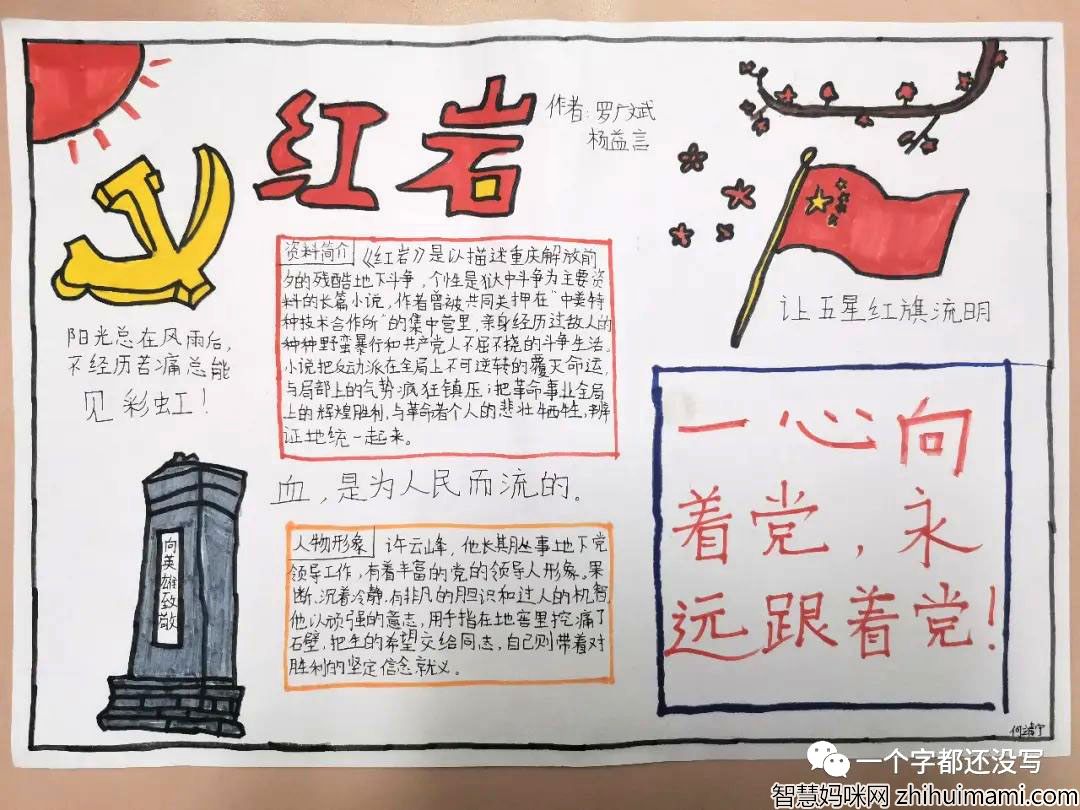 红岩
作者:罗广斌
杨益言
资料简介 《红岩》是以描述重庆解放前
夕的残酷地下斗争,个性是狱中斗争为主要资
料的长篇小说,作者曾被共同关押在“中美特
种技术合作所”的集中营里,亲身经历过敌人的
种种野蛮暴行和共产党人不屈不挠的斗争生活。
小说把反动派在全局上不可逆转的覆灭命运,
与局部上的气势疯狂镇压;把革命事业全局
上的辉煌胜利,与革命者个人的悲壮牺牲,辨
证地统一起来。
阳光总在风雨后,
不经历苦痛总能
见彩虹!
血,是为人民而流的。
向英雄致敬
人物形象 许云峰,他长期从事地下党
领导工作,有着丰富的党的领导人形象。果
断、沉着冷静、有非凡的胆识和过人的机智,
他以顽强的意志,用手指在地窖里挖痛了
石壁,把生的希望交给同志,自己则带着对
胜利的坚定信念就义。
让五星红旗流明
一心向
着党,永
远跟着党!
一个字都还没写
智慧妈咪网 zhihuimami.com